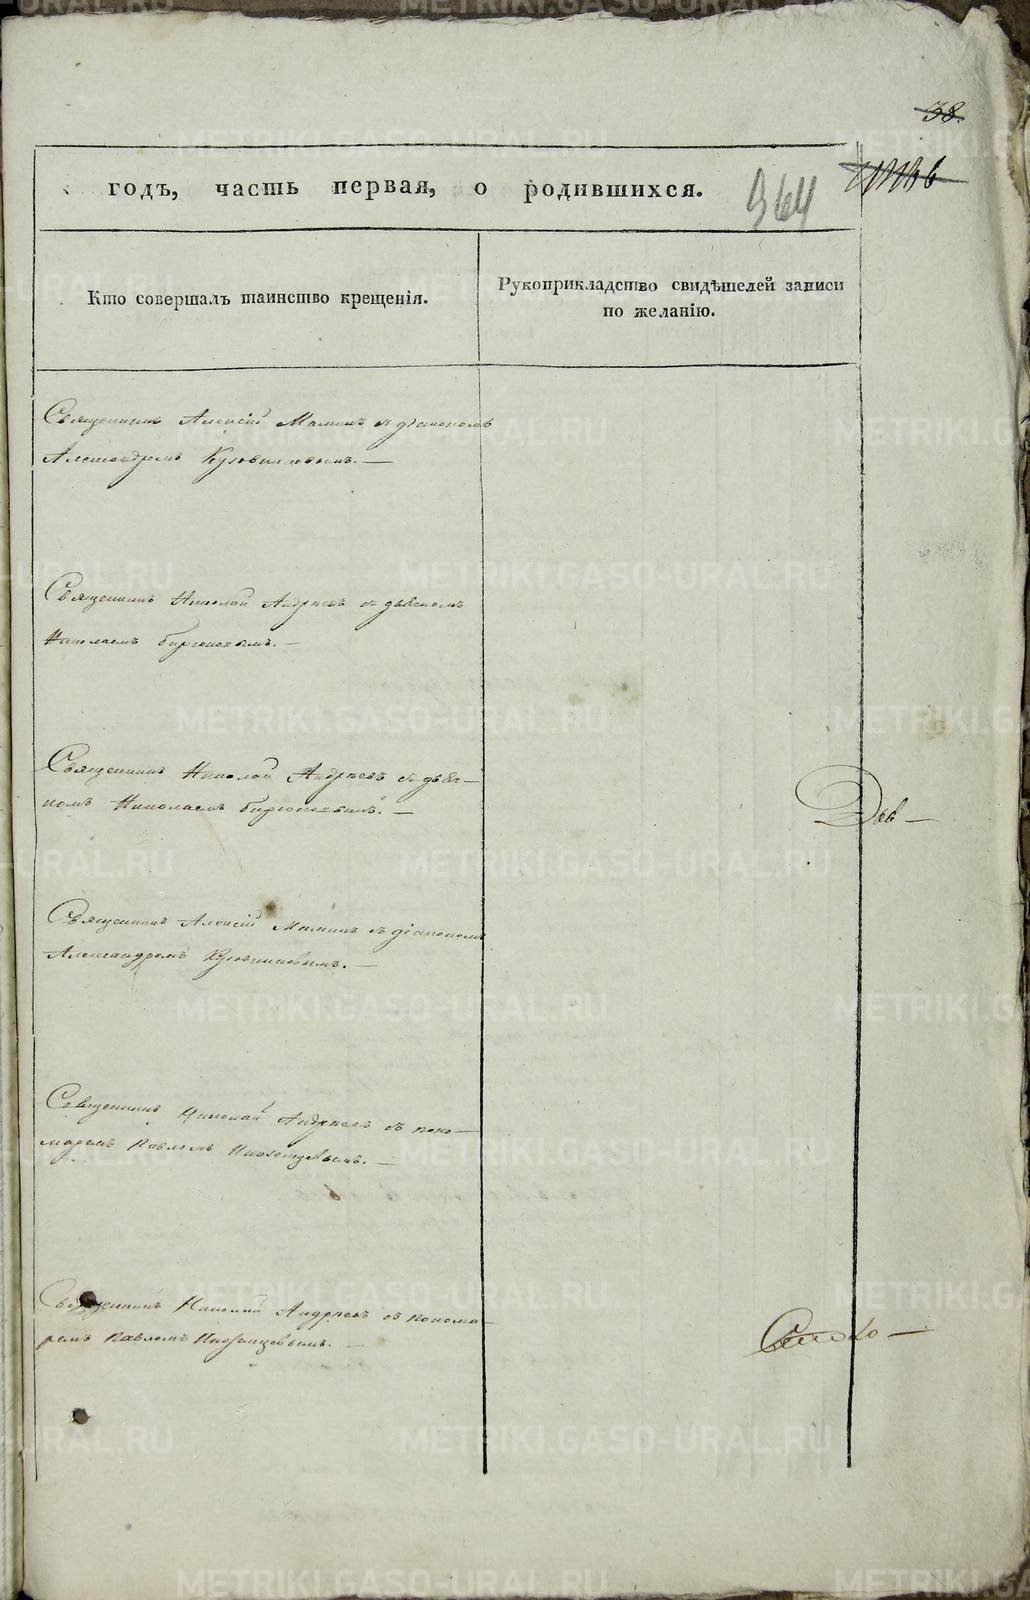 38.
364
годъ, часть первая, о родившихся.
Кто совершалъ таинство крещенія.
Рукоприкладство свидѣтелей записи
по желанію.
Священникъ Алексій Маминъ съ діакономъ
Александромъ
Священникъ Николай Андреевъ съ дьякономъ
Николаемъ Бирюковымъ. —
Священникъ Николай Андреевъ съ дьяч-
комъ Николаемъ Бирюковымъ. —
Дав —
Священникъ Алексій Маминъ съ діакономъ
Александромъ
Священникъ Николай Андреевъ съ поно-
маремъ Павломъ Иноземцовымъ. —
Священникъ Николай Андреевъ съ понома-
ремъ Павломъ Иноземцовымъ. —
METRIKI.GASO-URAL.RU